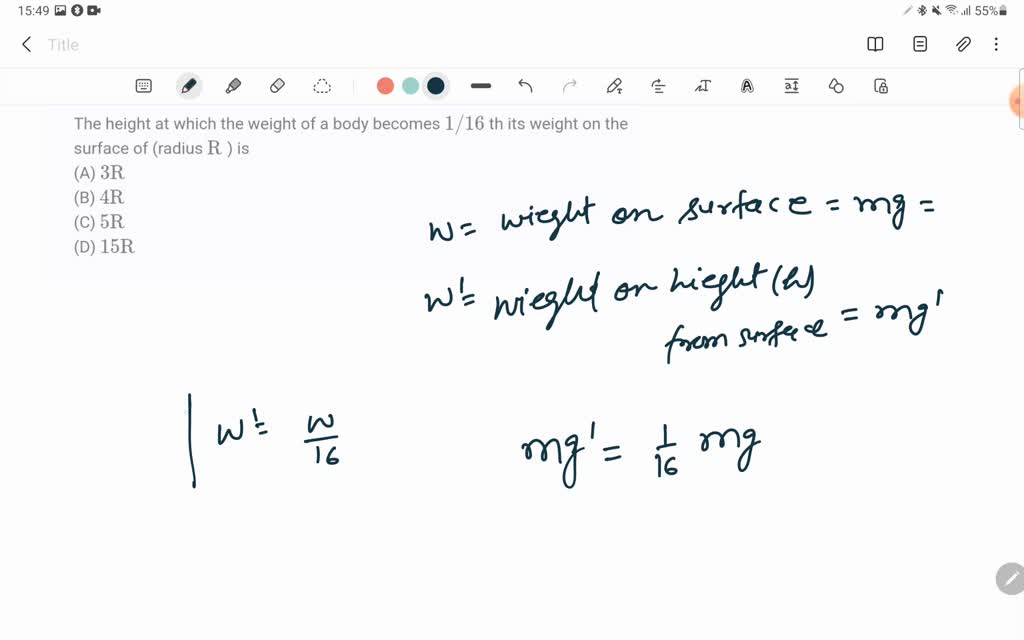 15:49 55%
Title
The height at which the weight of a body becomes 1/16 th its weight on the
surface of (radius R ) is
(A) 3R
(B) 4R
(C) 5R
(D) 15R
w = wieght on surface = mg =
w' = wieght on hieght (h)
from surface = mg'
w' = w/16
mg' = 1/16 mg